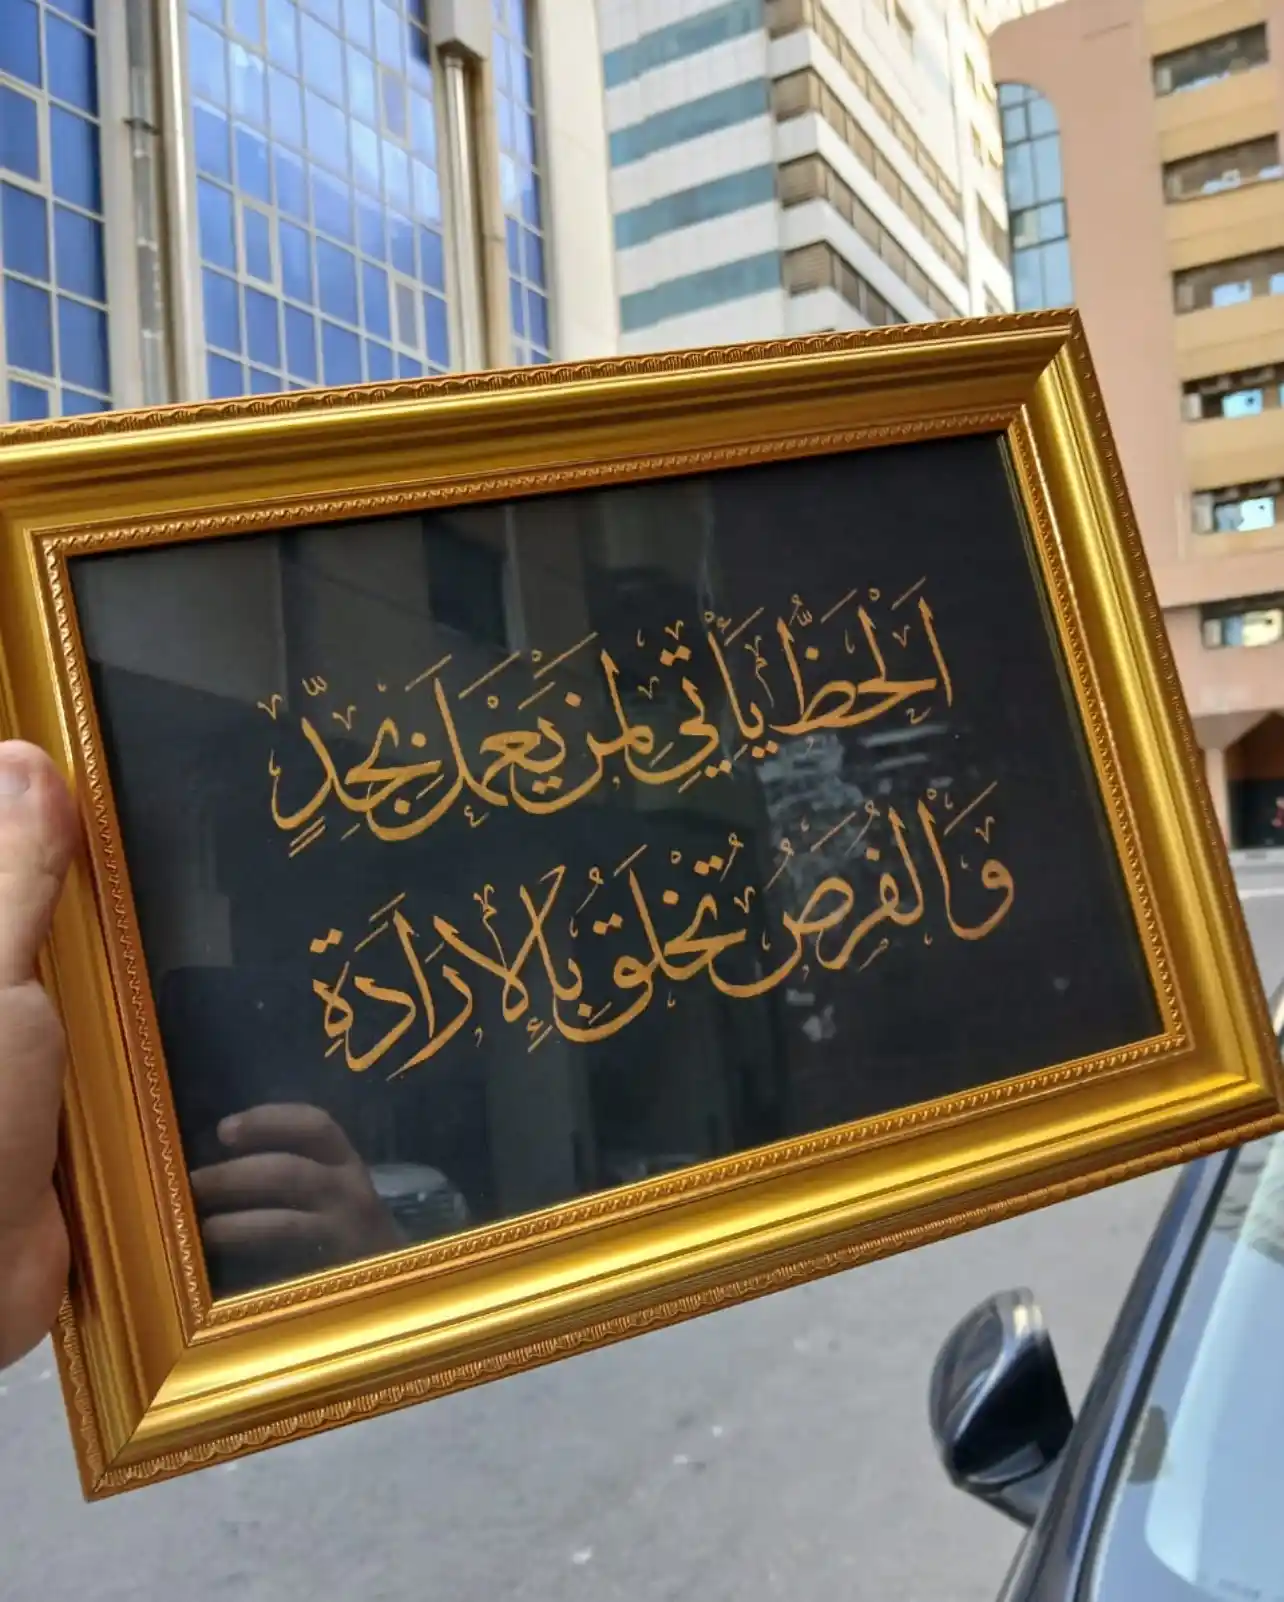 الْحَظُّ يَأْتِي لِمَنْ يَعْمَلُ بِجِدٍّ
وَالْفُرَصُ تُخْلَقُ بِالْإِرَادَةِ